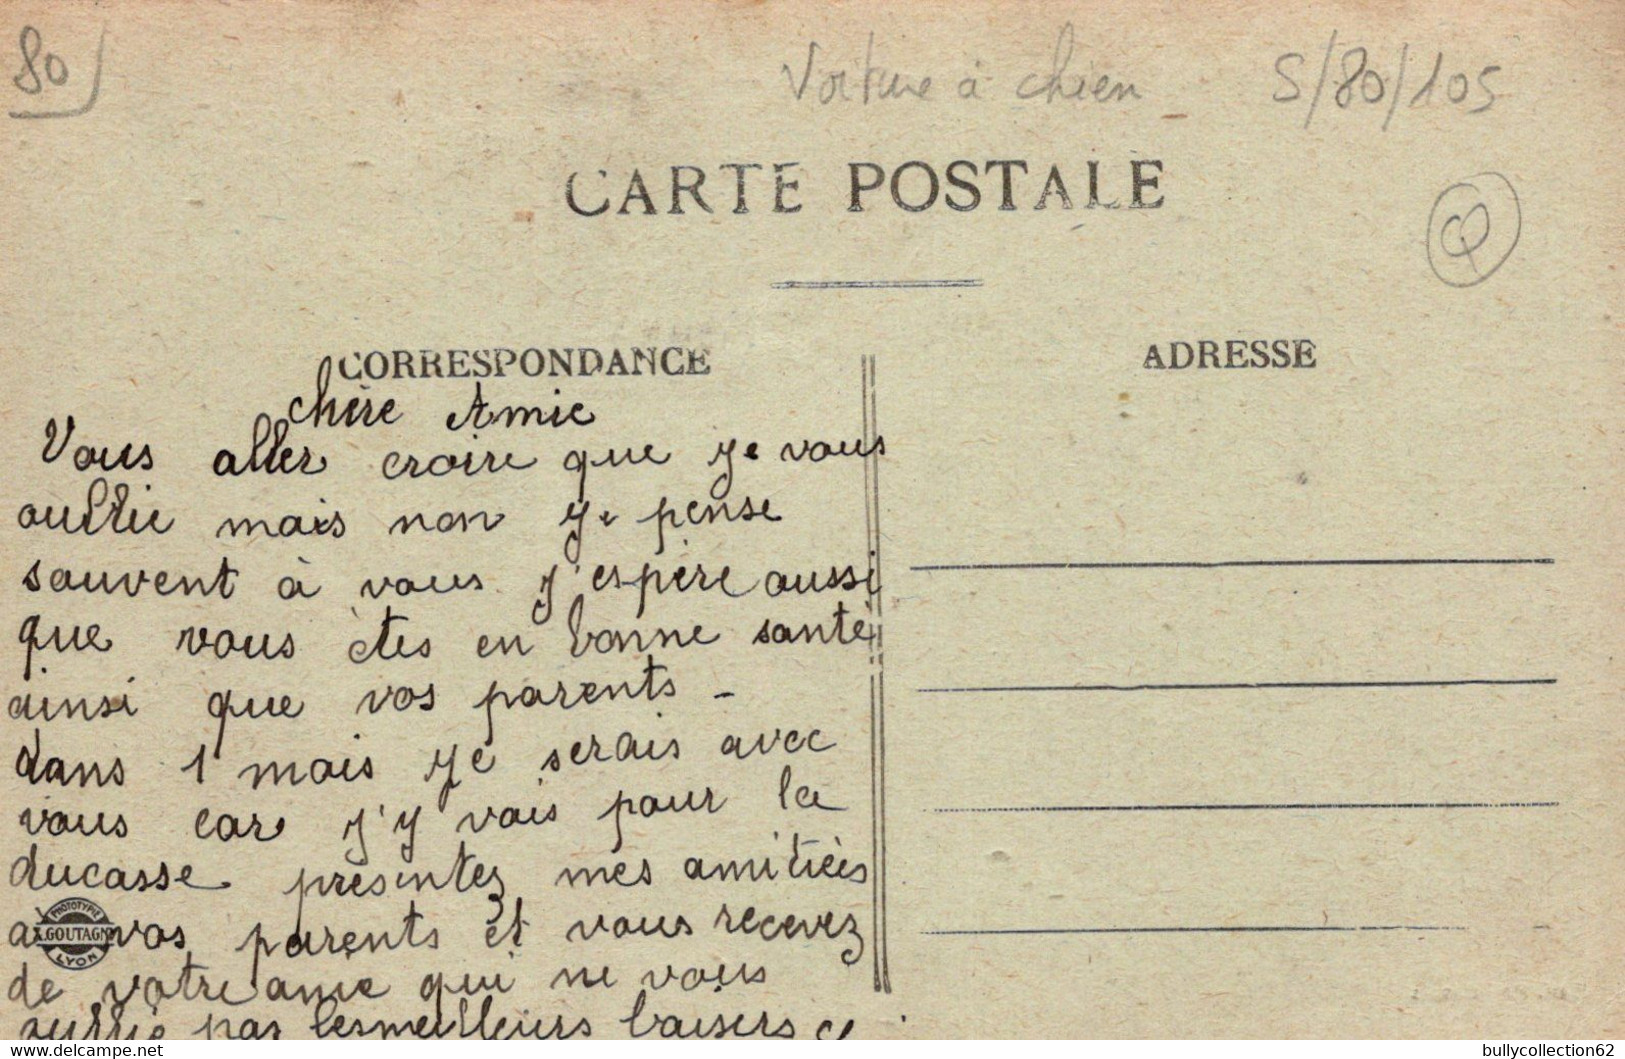 80
Voiture à chien
S/80/105
CARTE POSTALE
CORRESPONDANCE
ADRESSE
chère Amie
Vous aller croire que je vous
oublie mais non je pense
souvent à vous j'espère aussi
que vous ètes en bonne santé
ainsi que vos parents -
dans 1 mois je serais avec
vous car j'y vais pour la
ducasse présentez mes amitiées
a vos parents et vous recevez
de votre amie qui ne vous
oublie pas les meilleurs baisers
PHOTOTYPIE
A. GOUTAGNY
LYON
bullycollection62